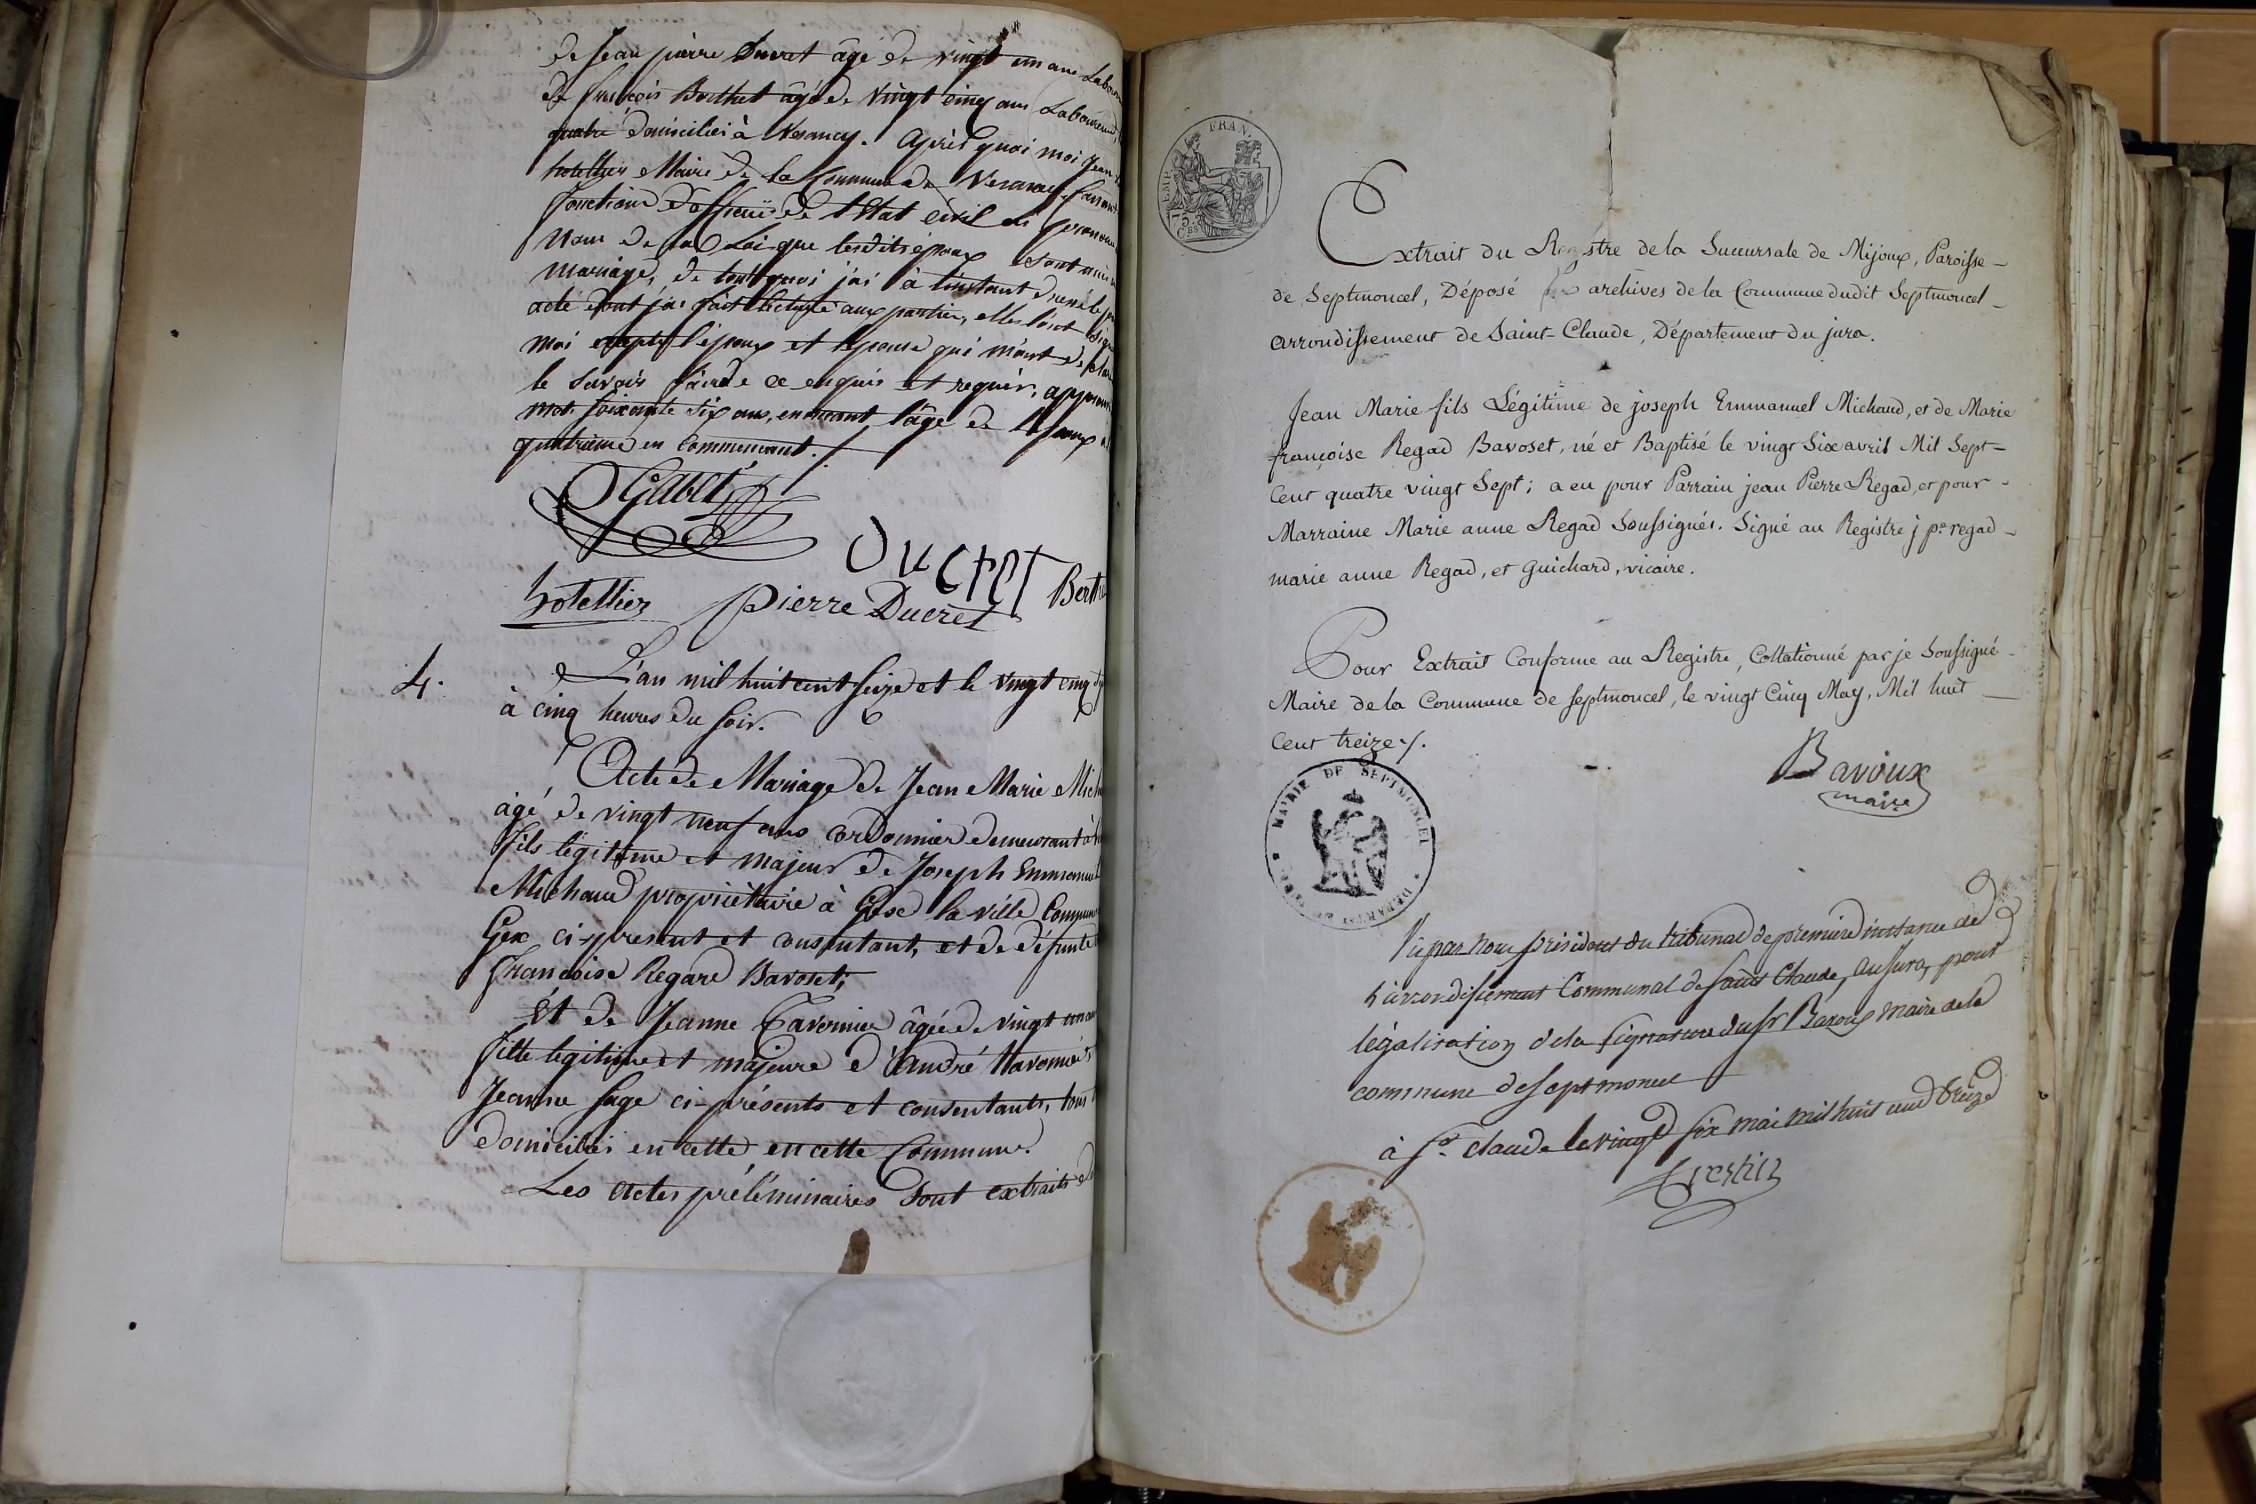 de Jean pierre Ducret âgé de vingt un ans
de francois Berthet âgé de vingt cinq ans Laboureur
quatre domiciliés à Vesancy. Après quoi moi Jean
hotellier Maire de la Commune de Vesancy faisant
fonctions d'officier de l'Etat civil ai prononcé
Nom de la Loi que lesdits époux sont unis
mariage, de tout quoi j'ai à l'instant dressé le
acte dont j'ai fait lecture aux parties, elles l'ont signé
moi excepté l'époux et l'épouse qui m'ont déclaré
le savoir faire de ce enquis et requis, approuvé
mots soixante six ans, énonçant l'âge de l'époux
quatrieme en commencant ./.
Gabet
Ducret
hotellier Pierre Ducret
4. L'an mil huit cent seize et le vingt cinq
à cinq heures du soir.
Acte de Mariage de Jean Marie
âgé de vingt neuf ans cordonnier demeurant à
fils légitime et majeur de Joseph Emmanuel
Michaud propriétaire à Gex la ville Commune
Gex ci-présent et consentant, et de défunte
françoise Regard Bavoset,
Et de Jeanne Tavernier âgée de vingt
fille légitime et majeure d'André Tavernier
Jeanne Sage ci-présents et consentants, tous
domiciliés en cette en cette Commune.
Les actes préléminaires sont extraits
EMP. FRAN.
75 Ces
Extrait du Registre de la Succursale de Mijoux, Paroisse
de Septmoncel, Déposé archives de la Commune dudit Septmoncel
arrondissement de Saint-Claude, Département du jura.
Jean Marie fils Légitime de joseph Emmanuel Michaud, et de Marie
françoise Regad Bavoset, né et Baptisé le vingt Six avril Mil Sept-
Cent quatre vingt Sept; a eu pour Parrain jean Pierre Regad, et pour
Marraine Marie anne Regad Soussignés. Signé au Registre j pre regad
marie anne Regad, et Guichard, vicaire.
Pour Extrait Conforme au Registre, Collationné par je Soussigné
Maire de la Commune de Septmoncel, le vingt Cinq May, Mil huit
Cent treize ./.
Bavoux
maire
MAIRIE DE SEPTMONCEL
Vu par nous président du tribunal de premiere instance de
l'arrondissement Communal de saint Claude, au Jura, pour
légalisation de la signature du sr Bavoux maire de la
commune de septmoncel
à St. claude le vingt six mai mil huit cent treize